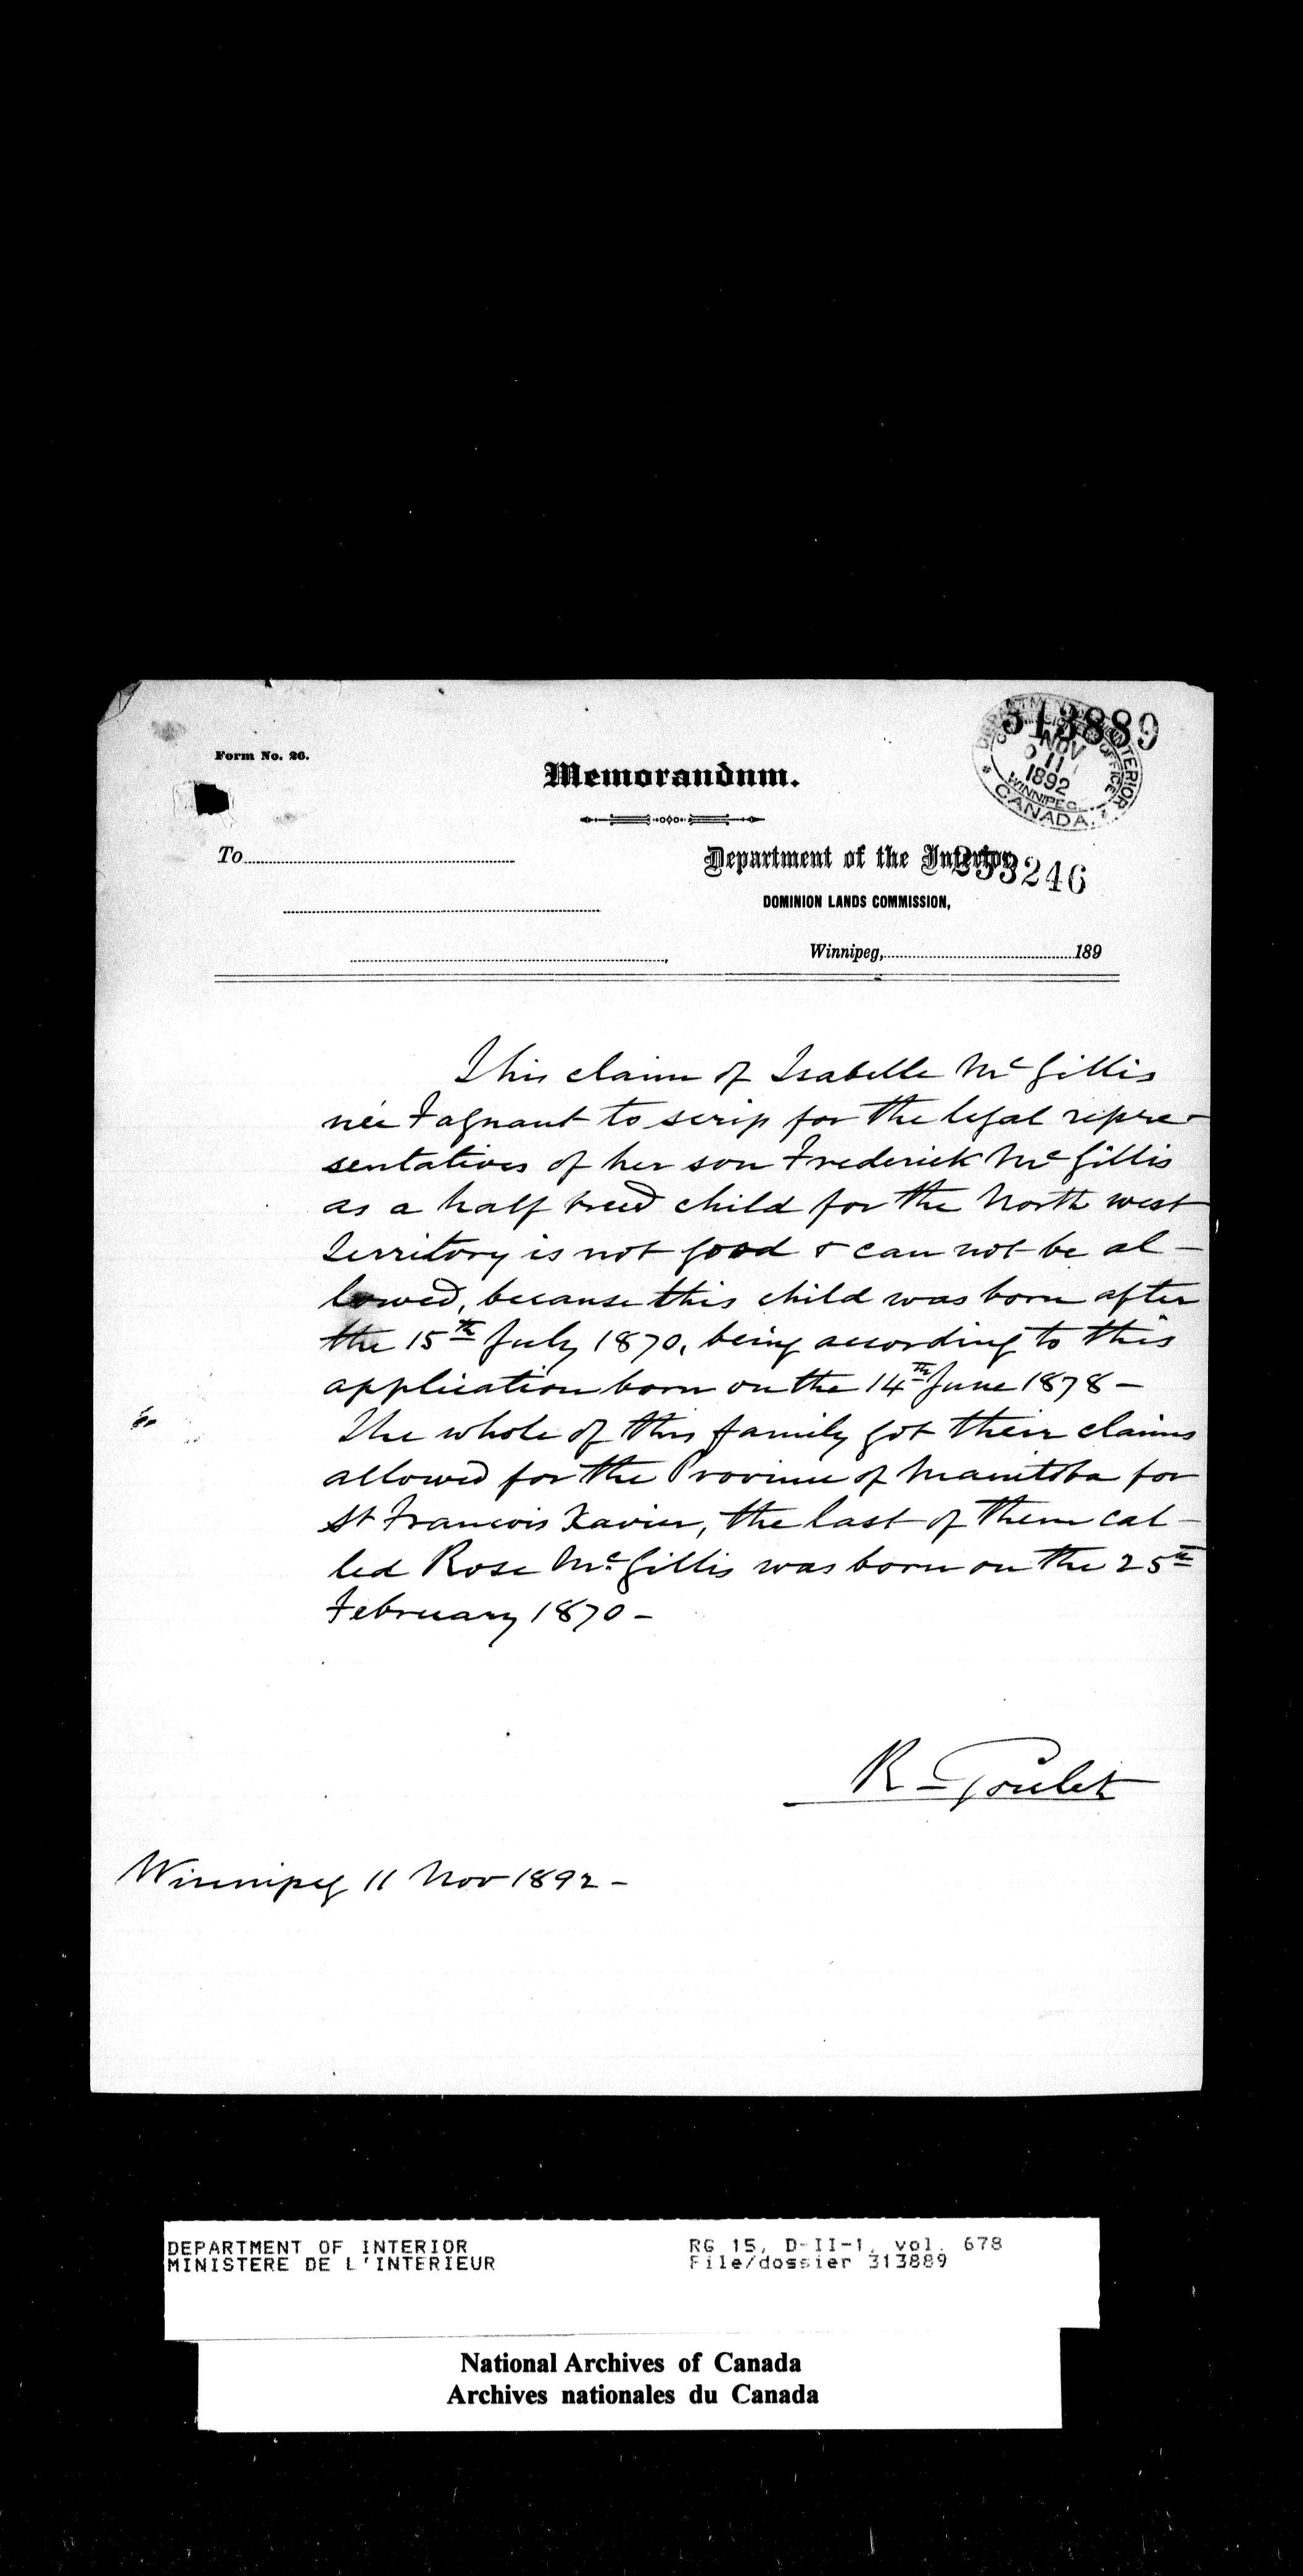 313889
Form No. 26.
Memorandum.
DEPARTMENT INTERIOR
OFFICE
NOV
11
1892
WINNIPEG
CANADA.
To
Department of the Interior,
246
DOMINION LANDS COMMISSION,
Winnipeg, 189
This claim of Isabelle McGillis
née Fagnant to scrip for the legal repre-
sentatives of her son Frederick McGillis
as a half breed child for the North west
Territory is not good & can not be al-
lowed, because this child was born after
the 15th July 1870, being according to this
application born on the 14th June 1878 -
The whole of this family got their claims
allowed for the Province of Manitoba for
St Francois Xavier, the last of them cal-
led Rose McGillis was born on the 25th
February 1870 -
R Goulet
Winnipeg 11 Nov 1892 -
DEPARTMENT OF INTERIOR RG 15, D-II-1, vol. 678
MINISTERE DE L'INTERIEUR File/dossier 313889
National Archives of Canada
Archives nationales du Canada